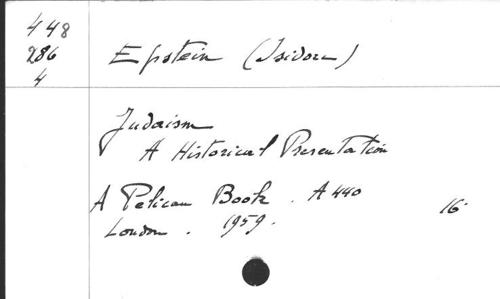 448
286
4
Epstein (Isidore)
Judaism
A Historical Presentation
A Pelican Book. A440
London. 1959.
16°